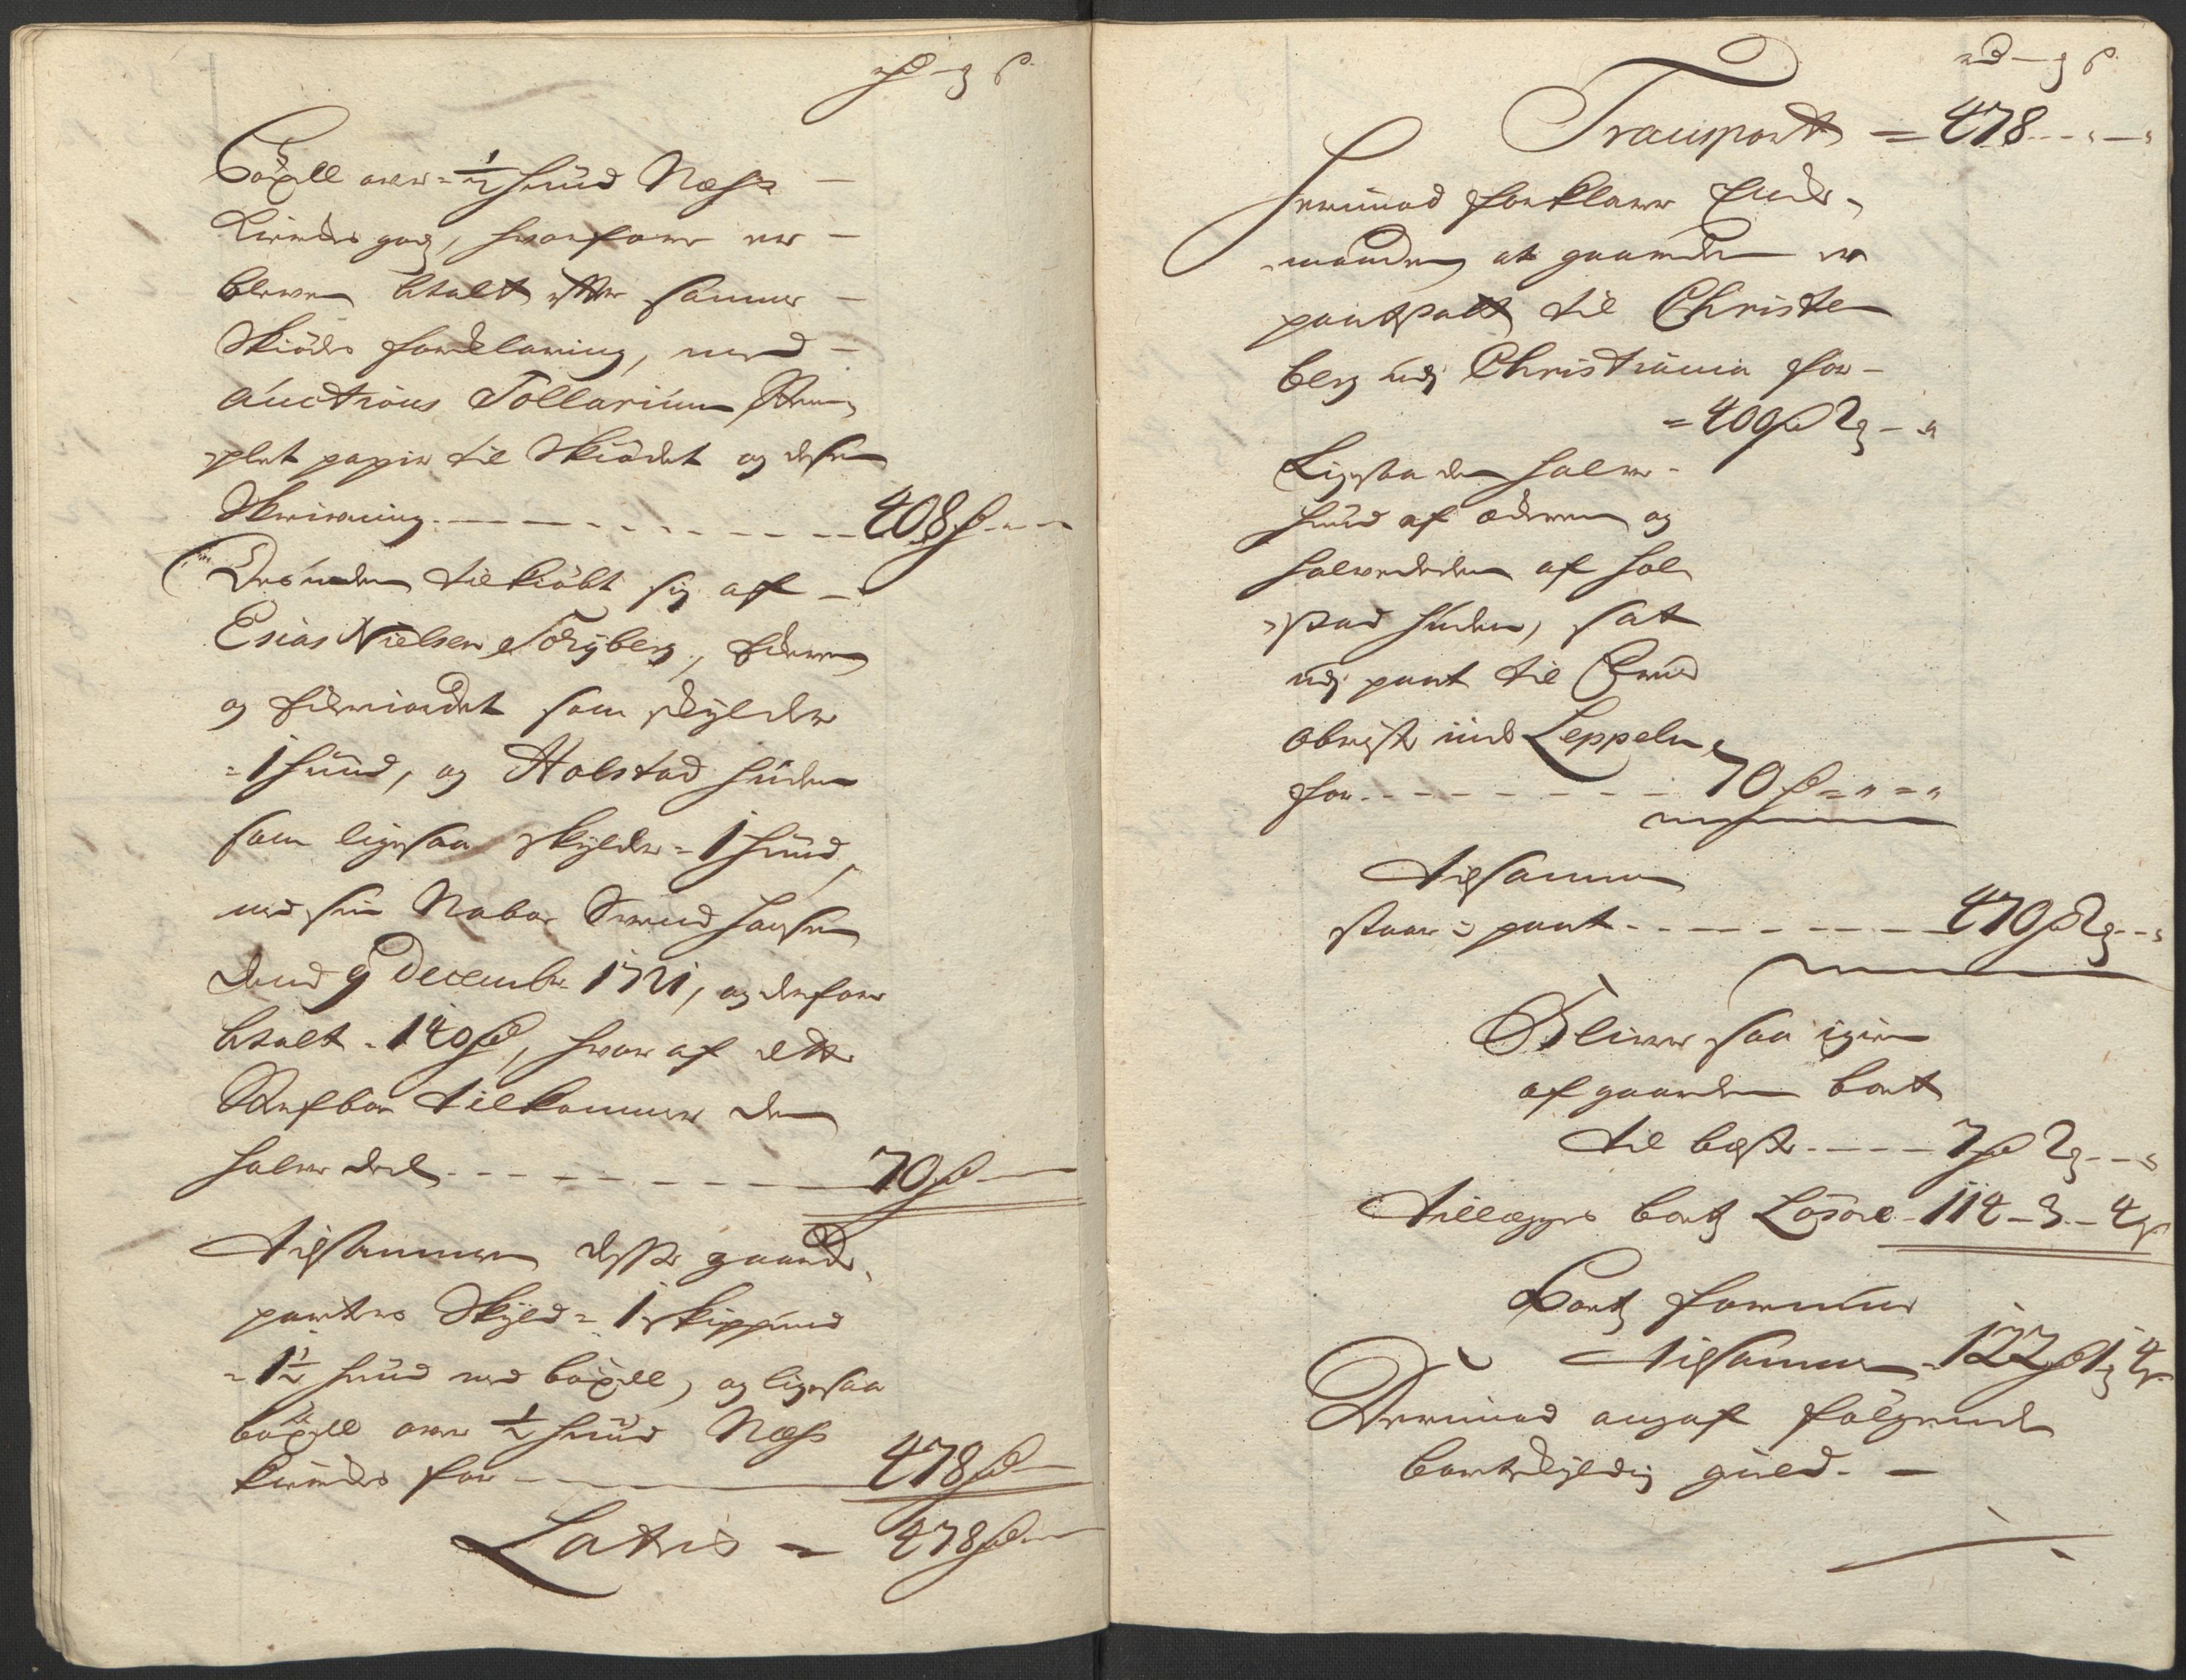 rd - ₰ s
Böxell over ½ huud Næss
Kirckes gods, hvorfore er
bleven betalt efter samme
Skiödes forklaring, med
Auctions Sollarium, Stem
plet papir til Skiödet og dessen
Skrivning - - - 408 rd - -
Desuden tilkiöbt sig af
Esias Nielsen Torgberg, Ødern
og som skylder
1 huud, og Holstad huden
som ligesaa skylder 1 huud,
med sin Nabor Svend Hansen
dend 9 Decembr 1721, og derfore
betalt 140 rd, hvor af dette
Sterfboe tilkommer den
halve deel - - - 70 rd -
Tilsammen disse gaarde
parters Skyld 1 skippund
1½ huud med böxell, og ligesaa
böxell over ½ huud Næss
Kirckes for - 478 rd -
Latris - 478 rd -
rd - ₰ s
Transport - 478 - -
Herimod forklarer Encke
manden at gaarden er
pantsatt til Christen
berg udj Christiania for
400 rd 2 ₰ -
Ligesaa den halve
huud af Ødern og
halvedelen af Hol
stad huden, sat
udj pant til
Obriste Leppeln,
for - - - 70 rd - -
Tilsammen
staar i pant - - - 470 rd 2 ₰ - -
Bliver saa igien
af gaarden boet
til beste - - - 7 rd 2 ₰ - -
Tillegges boets Lösöre 114 - 3 - 4 s
Boets formue
tilsammen - 122 rd 1 ₰ 4 s
Derimod angaf fölgende
bortskyldig gield -